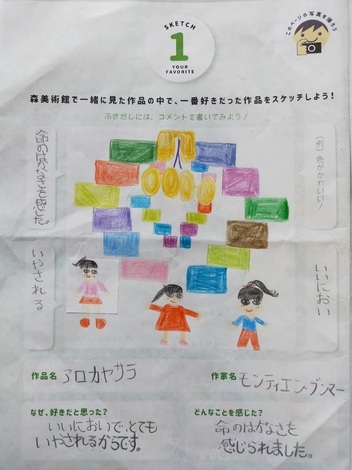 このページの写真を撮ろう
SKETCH
1
YOUR
FAVORITE
森美術館で一緒に見た作品の中で、一番好きだった作品をスケッチしよう!
ふきだしには、コメントを書いてみよう!
命のはかなさを感じた。
いやされる
(例) 色がかわいい!
いいにおい
作品名 アロカヤサラ
作家名 モンティエンブンマー
なぜ、好きだと思った?
いいにおいで、とても
いやされるからです。
どんなことを感じた?
命のはかなさを
感じられました。